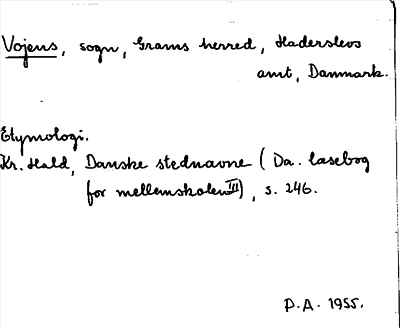 Vojens, sogn, Grams herred, Haderslevs
amt, Danmark.
Etymologi.
Kr. Hald, Danske stednavne (Da. læsebog
for mellemskolen III), s. 246.
P.A. 1955.